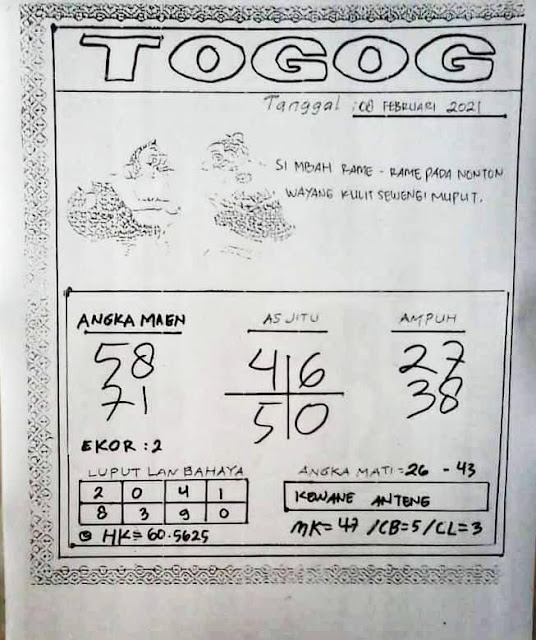 TOGOG
Tanggal : 08 FEBRUARI 2021
SI MBAH RAME - RAME PADA NONTON
WAYANG KULIT SEWENGI MUPUT.
ANGKA MAEN
58
71
EKOR : 2
AS JITU
4 6
5 0
AMPUH
27
38
LUPUT LAN BAHAYA
2 0 4 1
8 3 9 0
HK= 60.5625
ANGKA MATI = 26 - 43
KEWANE ANTENG
MK= 47 /CB=5/CL=3